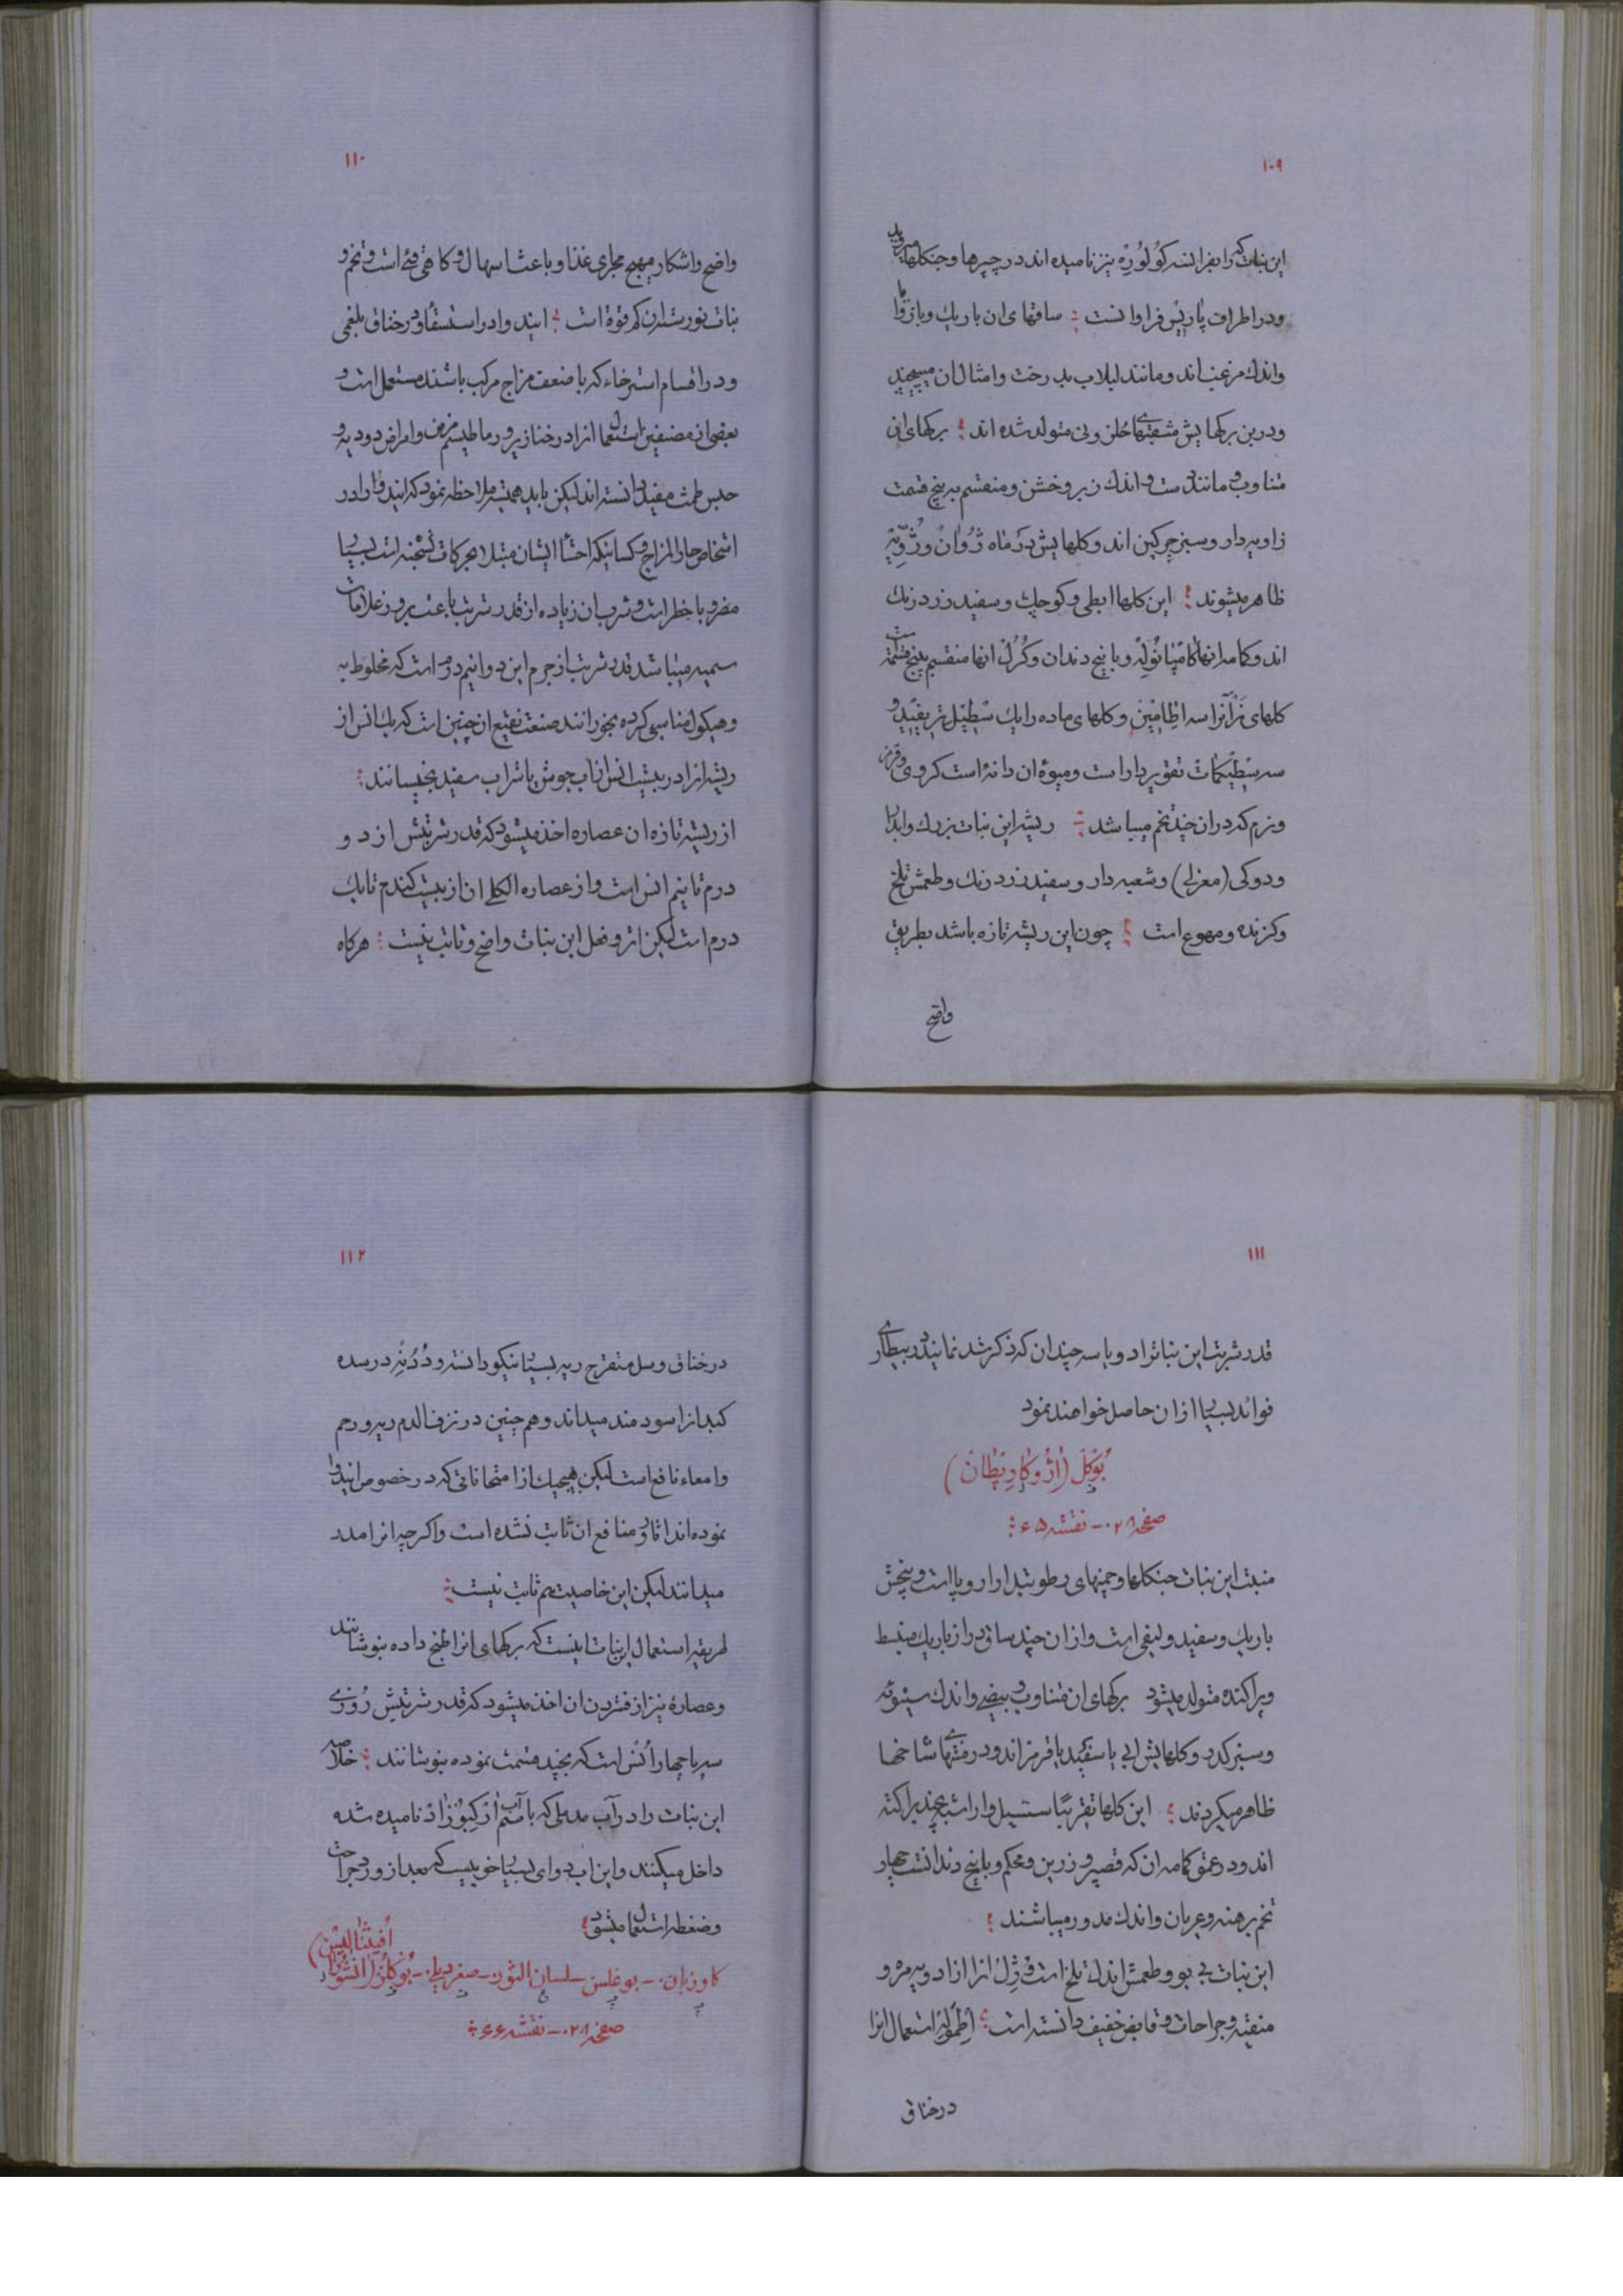 ۱۰۹
این نبات که را بفرانسه کُولُورِه نیز نامیده اند در چپرها و جنکلها میروید
و در اطراف پاریس فراوانست ؛ ساقهای ان باریك و با زوایا
و اندك مزغب اند و مانند لبلاب بدرخت و امثال ان میپیچند
و در بن برکهایش متولد شده اند ؛ برکهای ان
متناوب و مانند دست و اندك زبر و خشن و منقسم به پنج قسمت
زاویه دار و سبز چرکین اند و کلهایش در ماه ژُوان و ژُویّه
ظاهر میشوند ؛ این کلها ابطی و کوچك و سفید زرد رنك
اند و کامه انها کامپانُولِه و با پنج دندان و کُرُل انها منقسم به پنج قسمت
کلهای نر انرا سه اِطامین و کلهای ماده را یك سْطیل تریفید و
سه سطیکمات تقویر دار است و میوهٔ ان دانهٔ است کروی و قرمز
و نرم که در ان چند تخم میباشد ؛ ریشه این نبات بزرك و ابدار
و دوکی (مغزلی) و شعبه دار و سفید زرد رنك و طعمش تلخ
و کزنده و مهوع است ؛ چون این ریشه تازه باشد بطریق
واضح
۱۱۰
واضح و اشکار مهیج مجاری غذا و باعث اسهال و کا هی قئ است و تخم و
نبات نورسته ان کم قوة است ؛ ایند وا در استسقا و در خناق بلغمی
و در اقسام استرخاء که با ضعف مزاج مرکب باشند مستعمل است و
بعضی از مصنفین استعمال انرا در خنازیر و رماطیسم مزمن و امراض دودیه و
حبس طمث مفید دانسته اند لیکن باید همیشه ملاحظه نمود که ایند وا را در
اشخاص حار المزاج و کسانیکه احشا ایشان مبتلا بحرکات تشنجیه است بسیار
مضر و با خطر است و شرب ان زیاده از قدر شربت باعث بروز علامات
سمیه میباشد قدر شربت از جرم این دوا نیم درم است که مخلوط به
وهیکول مناسبی کرده بخورانند صنعت نقیع ان چنین است که یك انس از
ریشه انرا در بیست انس از اب جوش یا شراب سفید بخیسانند ؛
از ریشه تازه ان عصاره اخذ میشود که قدر شربتش از دو
درم تا نیم انس است و از عصاره الکلی ان از بیست کندم تا یك
درم است لیکن اثر و فعل این نبات واضح و ثابت نیست ؛ هرکاه
۱۱۱
قدر شربت این نبات را دو یا سه چندان که ذکر شد نمایند در بیطاری
فوائد بسیار از ان حاصل خواهند نمود
بُوکِل (اژُوکا رِپطان)
صفحه ۲۰۸ - نقشه ۶۵ ؛
منبت این نبات جنکلها و چمنهای رطوبتدار اروپا است و بیخش
باریك و سفید و لیفی است و از ان چند ساق دراز باریك منبسط
و پراکنده متولد میشود برکهای ان متناوب و بیضی و اندك
و سبز کدر و کلهایش ابی یا سفید یا قرمز اند و در منتهای شاخها
ظاهر میکردند ؛ این کلها تقریبًا سسیل و
اند و در عمق کامه ان که قصیر و زرین و محکم و با پنج دندانست چهار
تخم برهنه و عریان و اندك مدور میباشند ؛
این نبات بی بو و طعمش اندك تلخ است و ژِل انرا از ادویه مره و
منقیه جراحات و قابض خفیف دانسته است ؛ اطمولر استعمال انرا
در خناق
۱۱۲
در خناق و سل متقرح ریه بسیار نیکو دانسته و دُدُنِه در سده
کبد انرا سودمند میداند و هم چنین در نزف الدم ریه و رحم
و امعاء نافع است لیکن هیچیك از امتحاناتی که در خصوص ایند وا
نموده اند اثار و منافع ان ثابت نشده است و اکر چه انرا مدر
میدانند لیکن این خاصیت هم ثابت نیست ؛
طریقه استعمال این نبات اینست که برکهای انرا طبخ داده بنوشانند
و عصارهٔ نیز از فشردن ان اخذ میشود که قدر شربتش رُوزی
سه یا چهار اُنس است که بچند قسمت نموده بنوشانند ؛ خلاصه
این نبات را در آب مدملی که باسم آب ارکبوزاد نامیده شده
داخل میکنند و این اب دوای بسیار خوبیست که بعد از ورود جراحت
و ضغطه استعمال میشود ؛
کاوزبان - بوغلس - لسان الثور - صغردیلی - بُوکلُز (انشُوزا اُفیثنالیس)
صفحه ۲۰۸ - نقشه ۶۶ ؛